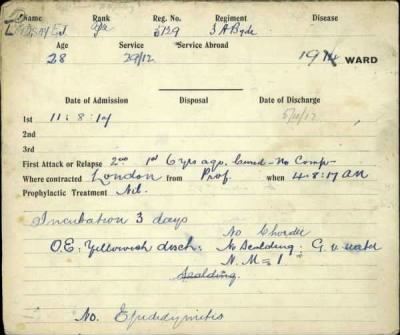 Name Rank Reg. No. Regiment Disease
E.J. Gnr 5129 3 A Bgde
Age Service Service Abroad
28 29/12 191 WARD
Date of Admission Disposal Date of Discharge
1st 11:8:17 5/10/17
2nd
3rd
First Attack or Relapse 2nd 1st 6 yrs ago. Cured - No Comp.
Where contracted London from Prof. when 4.8.17 AM
Prophylactic Treatment Nil.
Incubation 3 days
No Chordee
O.E: Yellowish disch: No Scalding: G. v. water
N.M = 1
Scalding.
No. Epididymitis